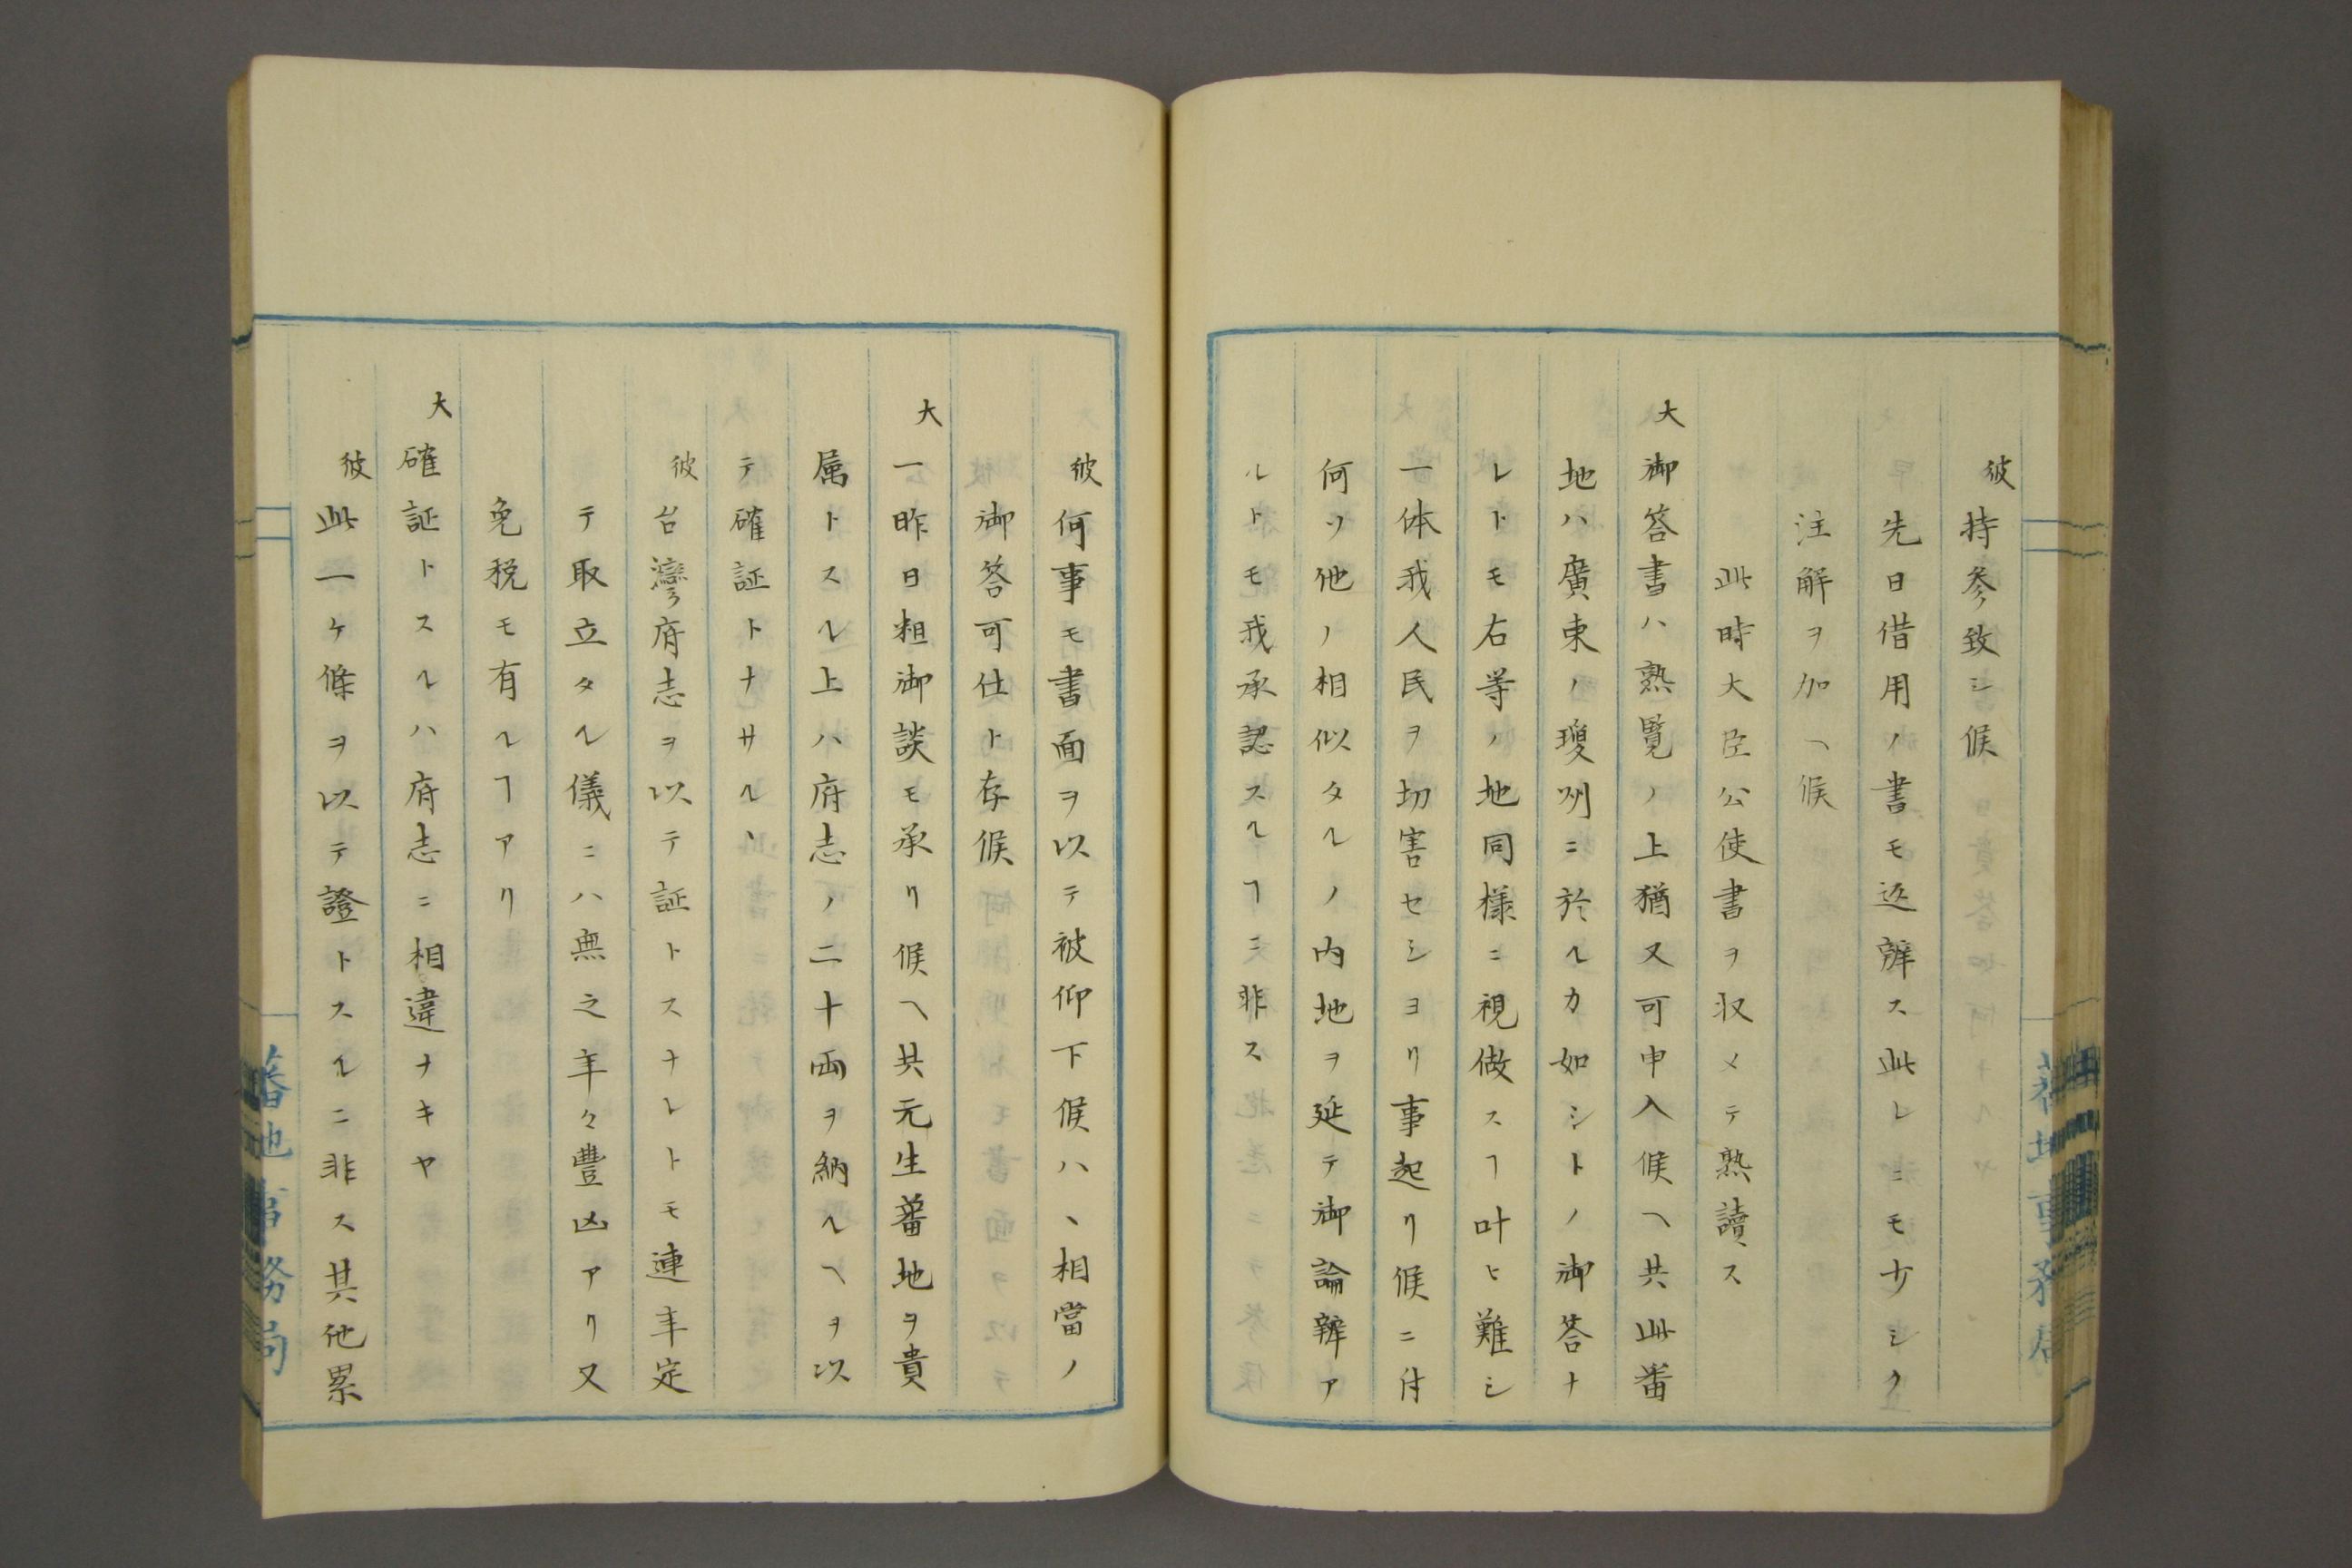 彼持参致シ候
先日借用ノ書モ返辨ス此レニモ少シク
注解ヲ加ヘ候
此時大臣公使書ヲ収メテ熟讀ス
大御答書ハ熟覽ノ上猶又可申入候ヘ共此番
地ハ廣東ノ瓊州ニ於ルカ如シトノ御答ナ
レトモ右等ノ地同様ニ視做スヿ叶ヒ難シ
一体我人民ヲ切害セシヨリ事起リ候ニ付
何ソ他ノ相似タルノ内地ヲ延テ御論辨ア
ルトモ我承認スルヿニ非ス
彼何事モ書面ヲ以テ被仰下候ハヽ相當ノ
御答可仕ト存候
大一昨日粗御談モ承リ候ヘ共元生蕃地ヲ貴
属トスル上ハ府志ノ二十両ヲ納ルヘヲ以
テ確証トナサルヽ
彼台灣府志ヲ以テ証トスナレトモ連年定
テ取立タル儀ニハ無之年々豊凶アリ又
免税モ有ルヿアリ
大確証トスルハ府志ニ相違ナキヤ
彼此一ケ條ヲ以テ證トスルニ非ス其他累
蕃地事務局